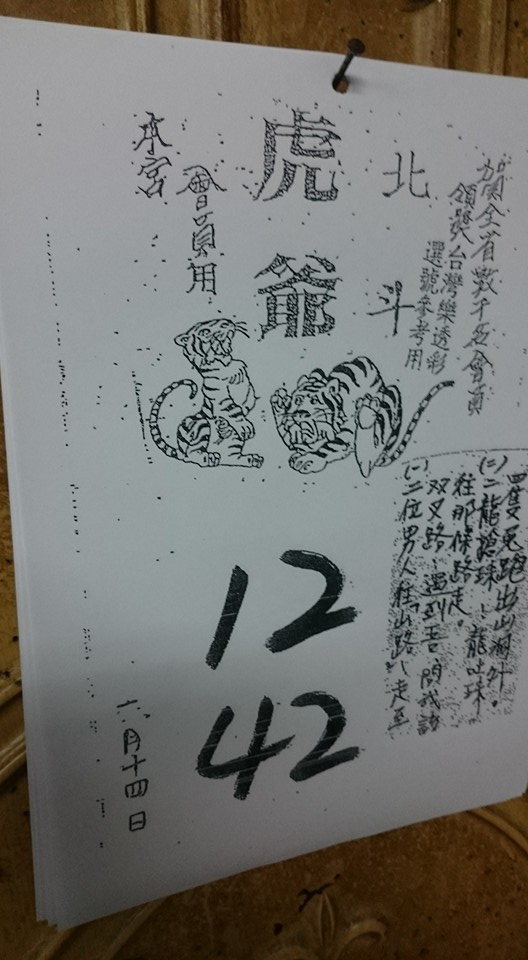 賀全省數千位會員
領獎台灣樂透彩
選號參考用
北斗
虎爺
會員用
本宮
(一)二位男人在山路,走至
双叉路,遇到吾問我該
往那條路走。
(二)二龍搶球,龍吐珠
四隻兔跑出山洞外。
12
42
六月十四日